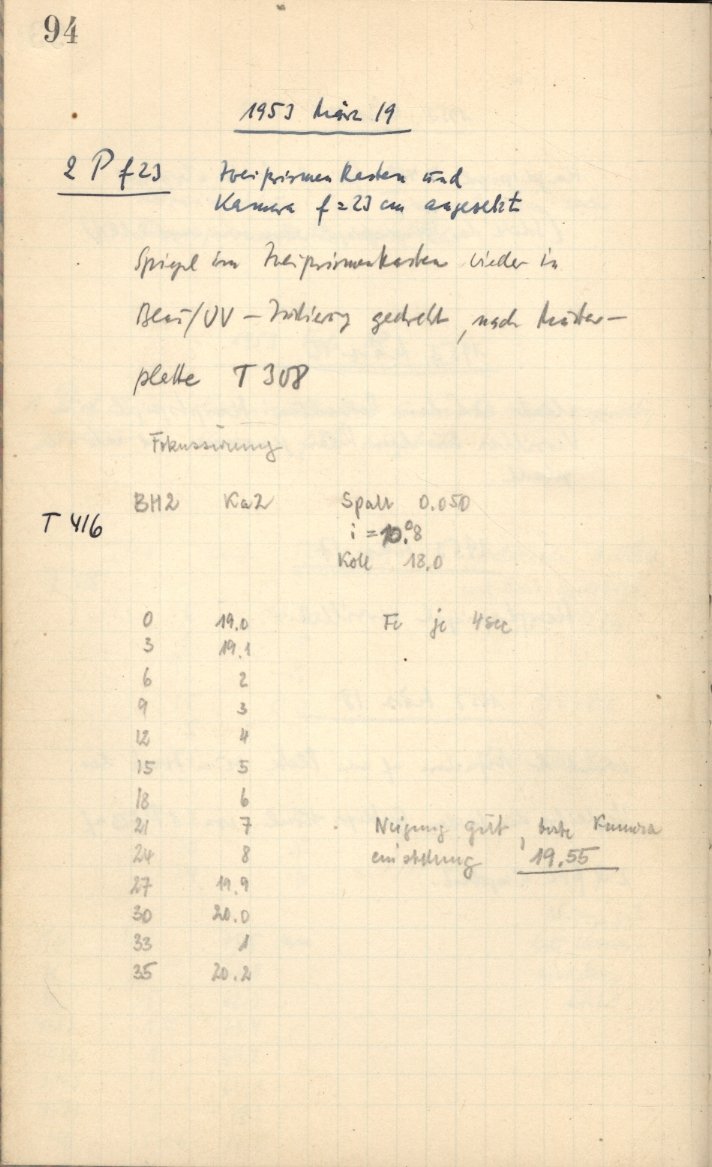 94
1953 März 19
2 P f 23 Zweiprismenkasten und
Kamera f = 23 cm angesetzt
Spiegel im Zweiprismenkasten wieder in
Blau/UV – gedreht, nach Muster-
platte T 308
Fokussierung
T 416 BH2 Ka2 Spalt 0.050
i = 10.°8
Koll 18.0
0 19.0 Fe je 4sec
3 19.1
6 2
9 3
12 4
15 5
18 6
21 7 Neigung gut, beste Kamera
24 8 einstellung 19.55
27 19.9
30 20.0
33 1
35 20.2